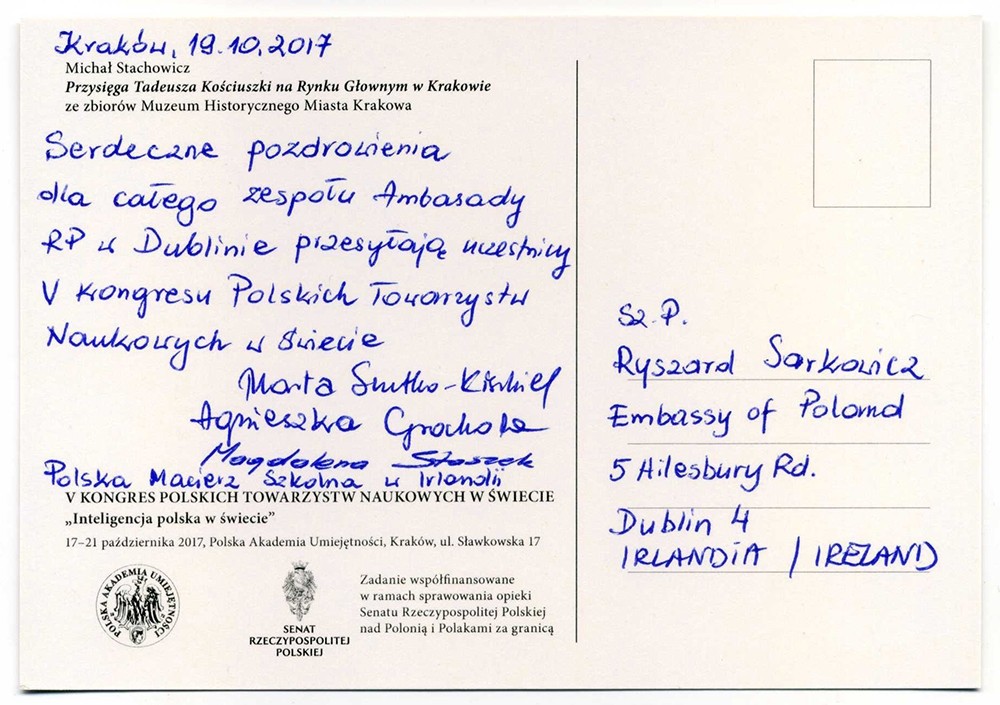 Kraków, 19.10.2017
Michał Stachowicz
Przysięga Tadeusza Kościuszki na Rynku Głownym w Krakowie
ze zbiorów Muzeum Historycznego Miasta Krakowa
Serdeczne pozdrowienia
dla całego zespołu Ambasady
RP w Dublinie przesyłają uczestnicy
V Kongresu Polskich Towarzystw
Naukowych w Świecie
Marta
Agnieszka Grochola
Magdalena Staszek
Polska Macierz Szkolna w Irlandii
V KONGRES POLSKICH TOWARZYSTW NAUKOWYCH W ŚWIECIE
„Inteligencja polska w świecie”
17–21 października 2017, Polska Akademia Umiejętności, Kraków, ul. Sławkowska 17
POLSKA AKADEMIA UMIEJĘTNOŚCI
SENAT
RZECZYPOSPOLITEJ
POLSKIEJ
Zadanie współfinansowane
w ramach sprawowania opieki
Senatu Rzeczypospolitej Polskiej
nad Polonią i Polakami za granicą
Sz. P.
Ryszard Sarkowicz
Embassy of Poland
5 Ailesbury Rd.
Dublin 4
IRLANDIA / IRELAND